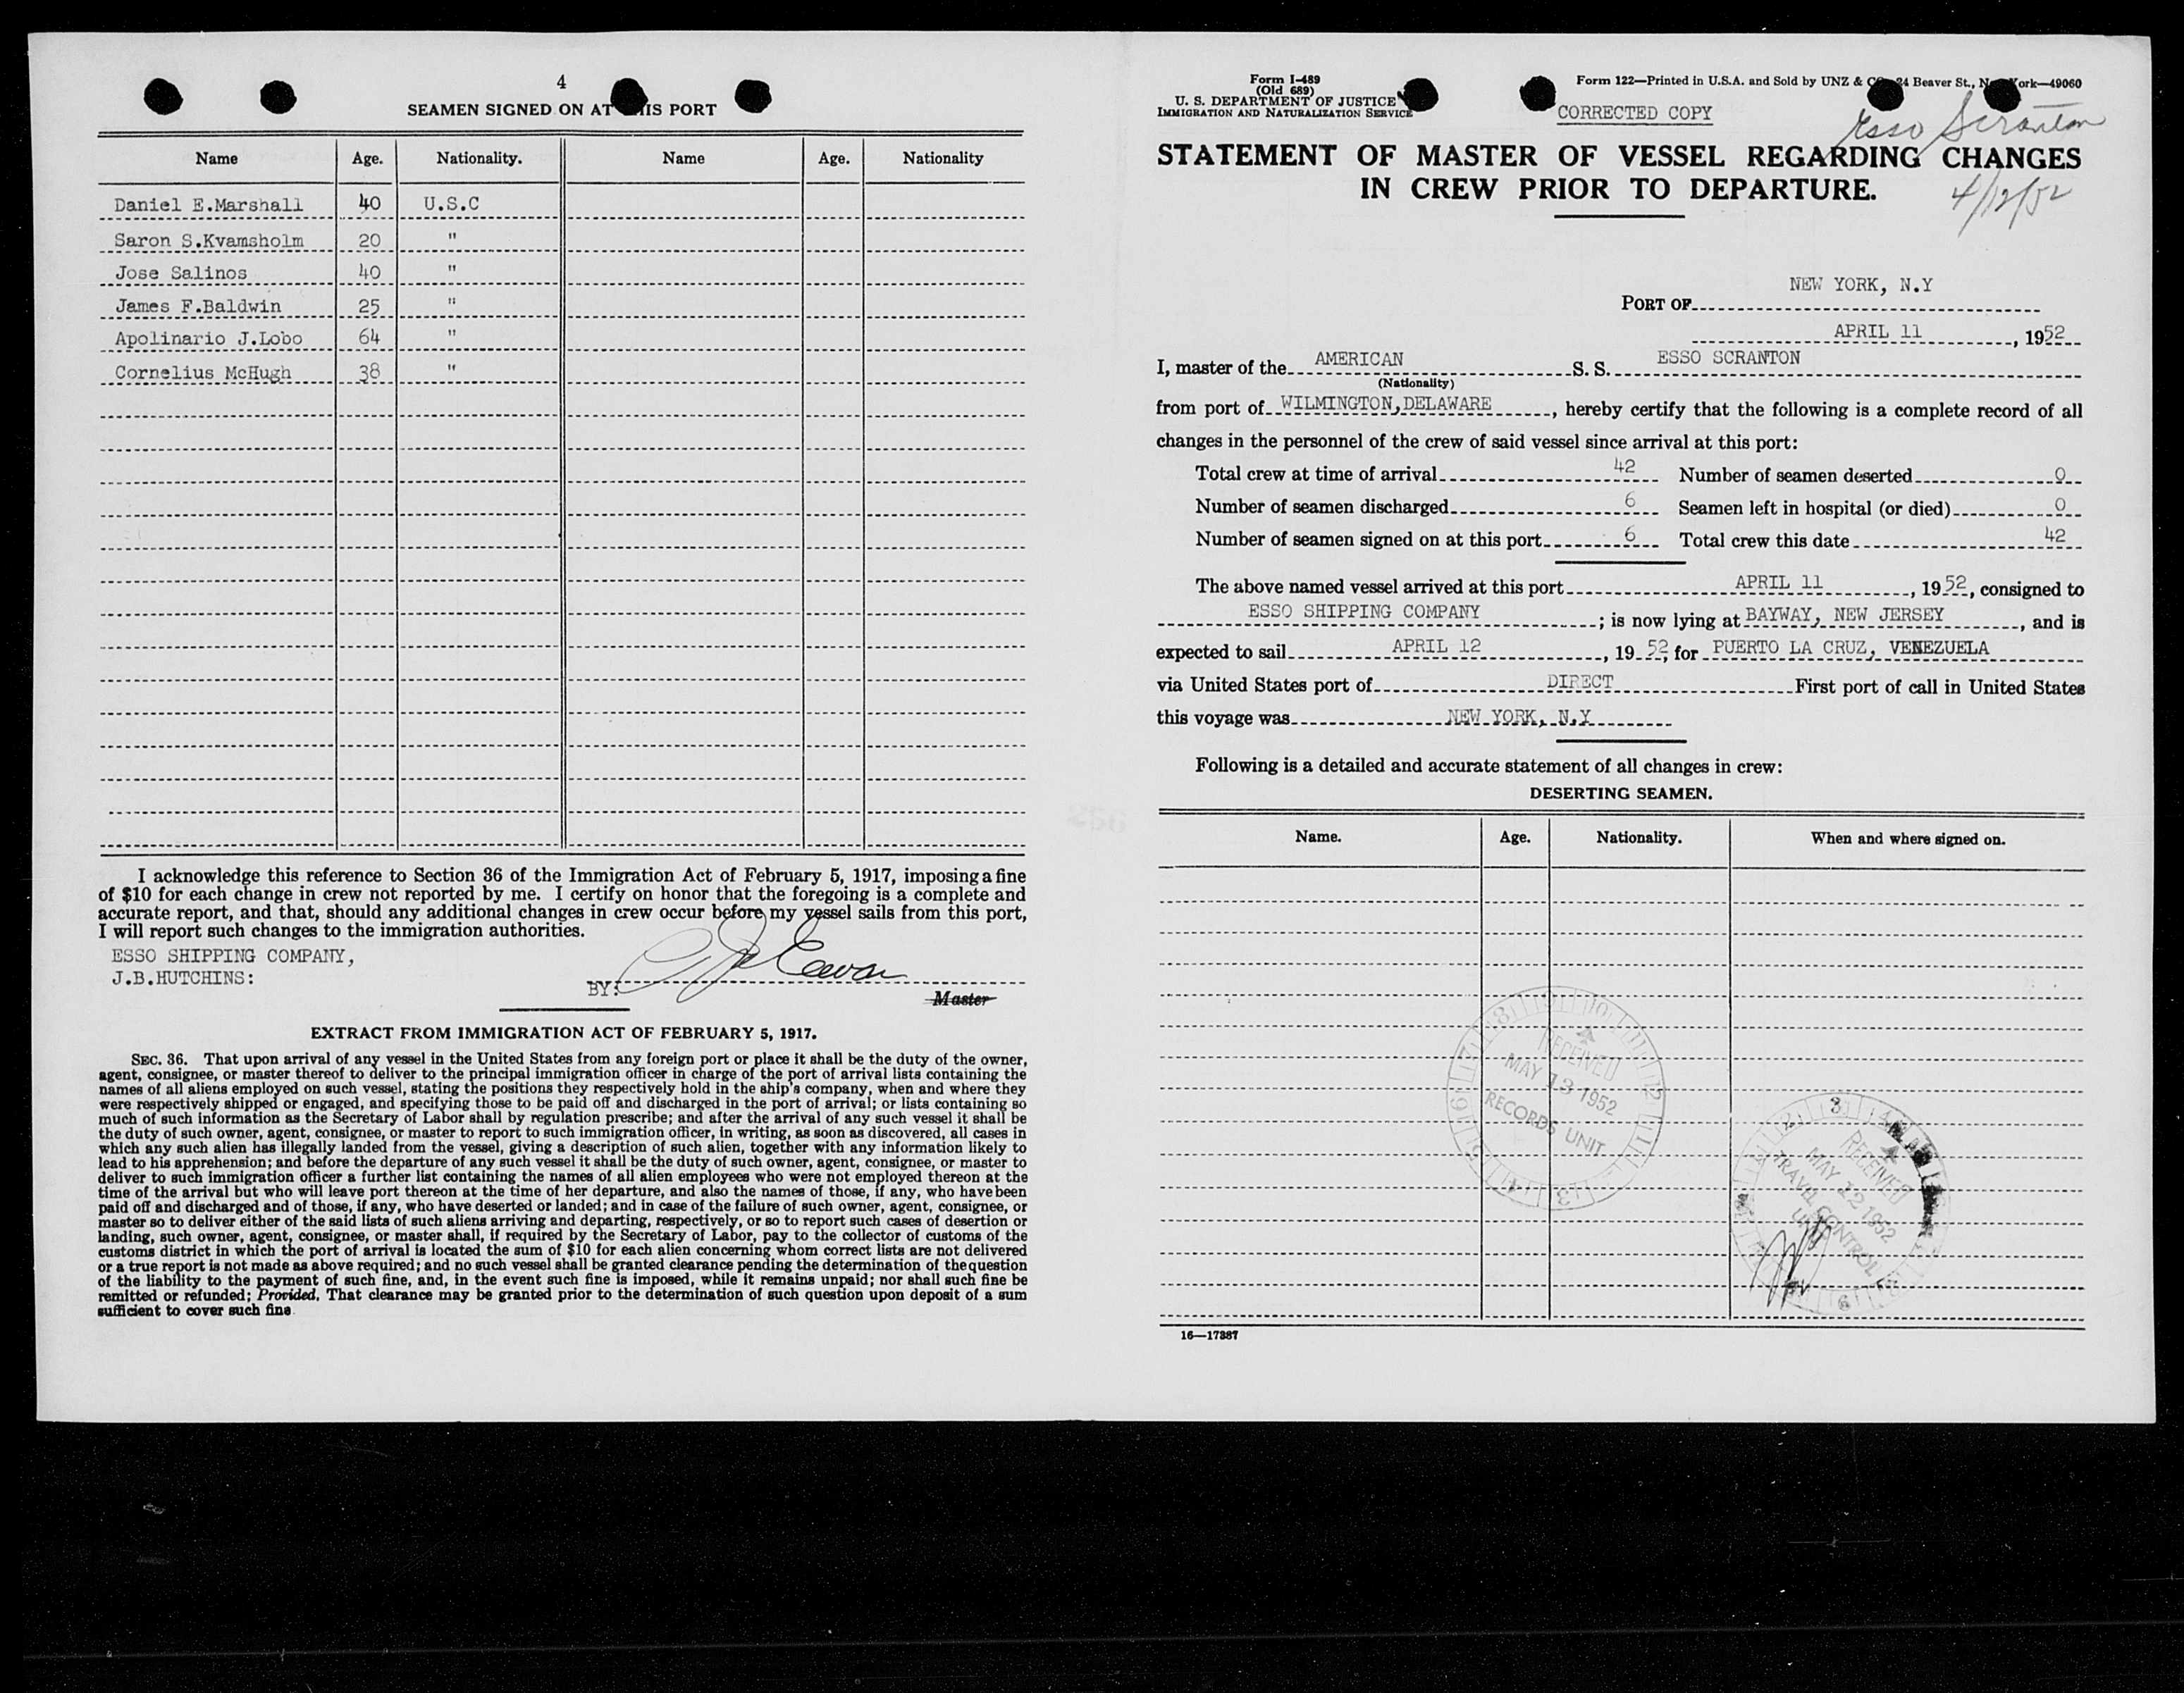 4
SEAMEN SIGNED ON AT THIS PORT
Name Age. Nationality. Name Age. Nationality
Daniel E.Marshall 40 U.S.C
Saron S.Kvamsholm 20 "
Jose Salinos 40 "
James F.Baldwin 25 "
Apolinario J.Lobo 64 "
Cornelius McHugh 38 "
I acknowledge this reference to Section 36 of the Immigration Act of February 5, 1917, imposing a fine
of $10 for each change in crew not reported by me. I certify on honor that the foregoing is a complete and
accurate report, and that, should any additional changes in crew occur before my vessel sails from this port,
I will report such changes to the immigration authorities.
ESSO SHIPPING COMPANY,
J.B.HUTCHINS:
BY:
Master
EXTRACT FROM IMMIGRATION ACT OF FEBRUARY 5, 1917.
SEC. 36. That upon arrival of any vessel in the United States from any foreign port or place it shall be the duty of the owner,
agent, consignee, or master thereof to deliver to the principal immigration officer in charge of the port of arrival lists containing the
names of all aliens employed on such vessel, stating the positions they respectively hold in the ship's company, when and where they
were respectively shipped or engaged, and specifying those to be paid off and discharged in the port of arrival; or lists containing so
much of such information as the Secretary of Labor shall by regulation prescribe; and after the arrival of any such vessel it shall be
the duty of such owner, agent, consignee, or master to report to such immigration officer, in writing, as soon as discovered, all cases in
which any such alien has illegally landed from the vessel, giving a description of such alien, together with any information likely to
lead to his apprehension; and before the departure of any such vessel it shall be the duty of such owner, agent, consignee, or master to
deliver to such immigration officer a further list containing the names of all alien employees who were not employed thereon at the
time of the arrival but who will leave port thereon at the time of her departure, and also the names of those, if any, who have been
paid off and discharged and of those, if any, who have deserted or landed; and in case of the failure of such owner, agent, consignee, or
master so to deliver either of the said lists of such aliens arriving and departing, respectively, or so to report such cases of desertion or
landing, such owner, agent, consignee, or master shall, if required by the Secretary of Labor, pay to the collector of customs of the
customs district in which the port of arrival is located the sum of $10 for each alien concerning whom correct lists are not delivered
or a true report is not made as above required; and no such vessel shall be granted clearance pending the determination of the question
of the liability to the payment of such fine, and, in the event such fine is imposed, while it remains unpaid; nor shall such fine be
remitted or refunded; Provided, That clearance may be granted prior to the determination of such question upon deposit of a sum
sufficient to cover such fine.
Form I-489
(Old 689)
U. S. DEPARTMENT OF JUSTICE
IMMIGRATION AND NATURALIZATION SERVICE
Form 122—Printed in U.S.A. and Sold by UNZ & CO., 24 Beaver St., New York—49060
CORRECTED COPY
Esso Scranton
STATEMENT OF MASTER OF VESSEL REGARDING CHANGES
IN CREW PRIOR TO DEPARTURE.
4/12/52
PORT OF NEW YORK, N.Y
APRIL 11, 1952
I, master of the AMERICAN S. S. ESSO SCRANTON
(Nationality)
from port of WILMINGTON,DELAWARE, hereby certify that the following is a complete record of all
changes in the personnel of the crew of said vessel since arrival at this port:
Total crew at time of arrival 42 Number of seamen deserted 0
Number of seamen discharged 6 Seamen left in hospital (or died) 0
Number of seamen signed on at this port 6 Total crew this date 42
The above named vessel arrived at this port APRIL 11, 1952, consigned to
ESSO SHIPPING COMPANY; is now lying at BAYWAY, NEW JERSEY, and is
expected to sail APRIL 12, 1952, for PUERTO LA CRUZ, VENEZUELA
via United States port of DIRECT First port of call in United States
this voyage was NEW YORK, N.Y
Following is a detailed and accurate statement of all changes in crew:
DESERTING SEAMEN.
Name. Age. Nationality. When and where signed on.
RECEIVED
MAY 13 1952
RECORDS UNIT
RECEIVED
MAY 12 1952
TRAVEL CONTROL
UNIT
16—17387